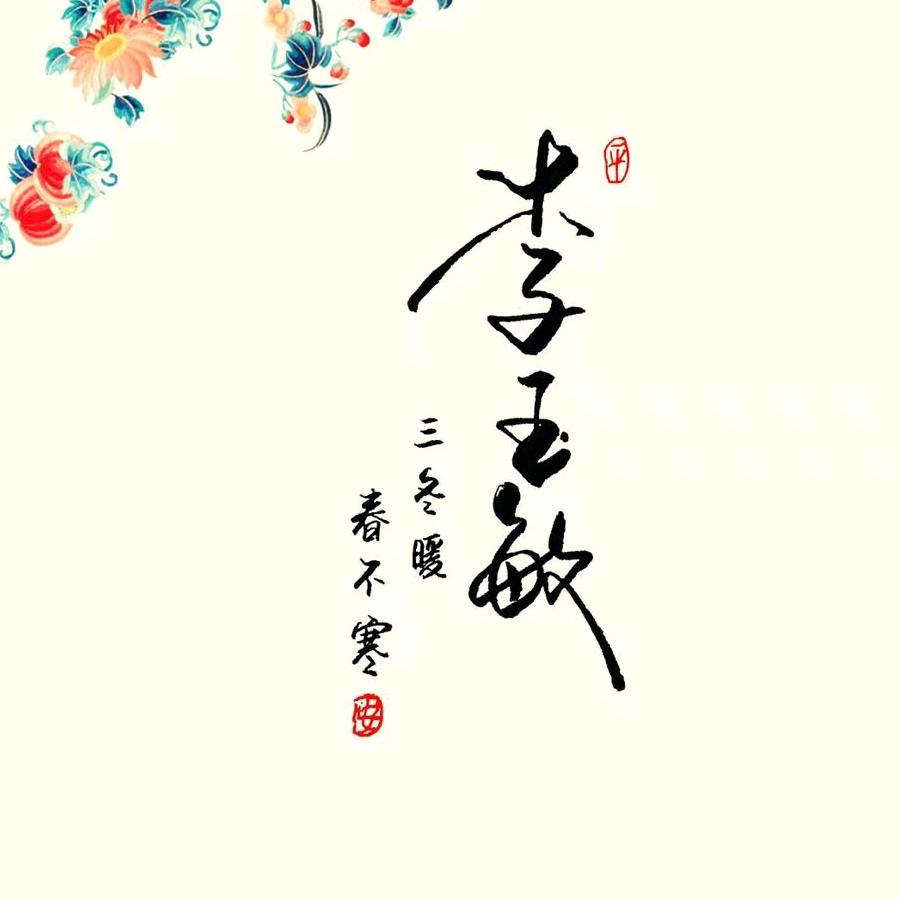 李玉敏
平
三冬暖
春不寒
安